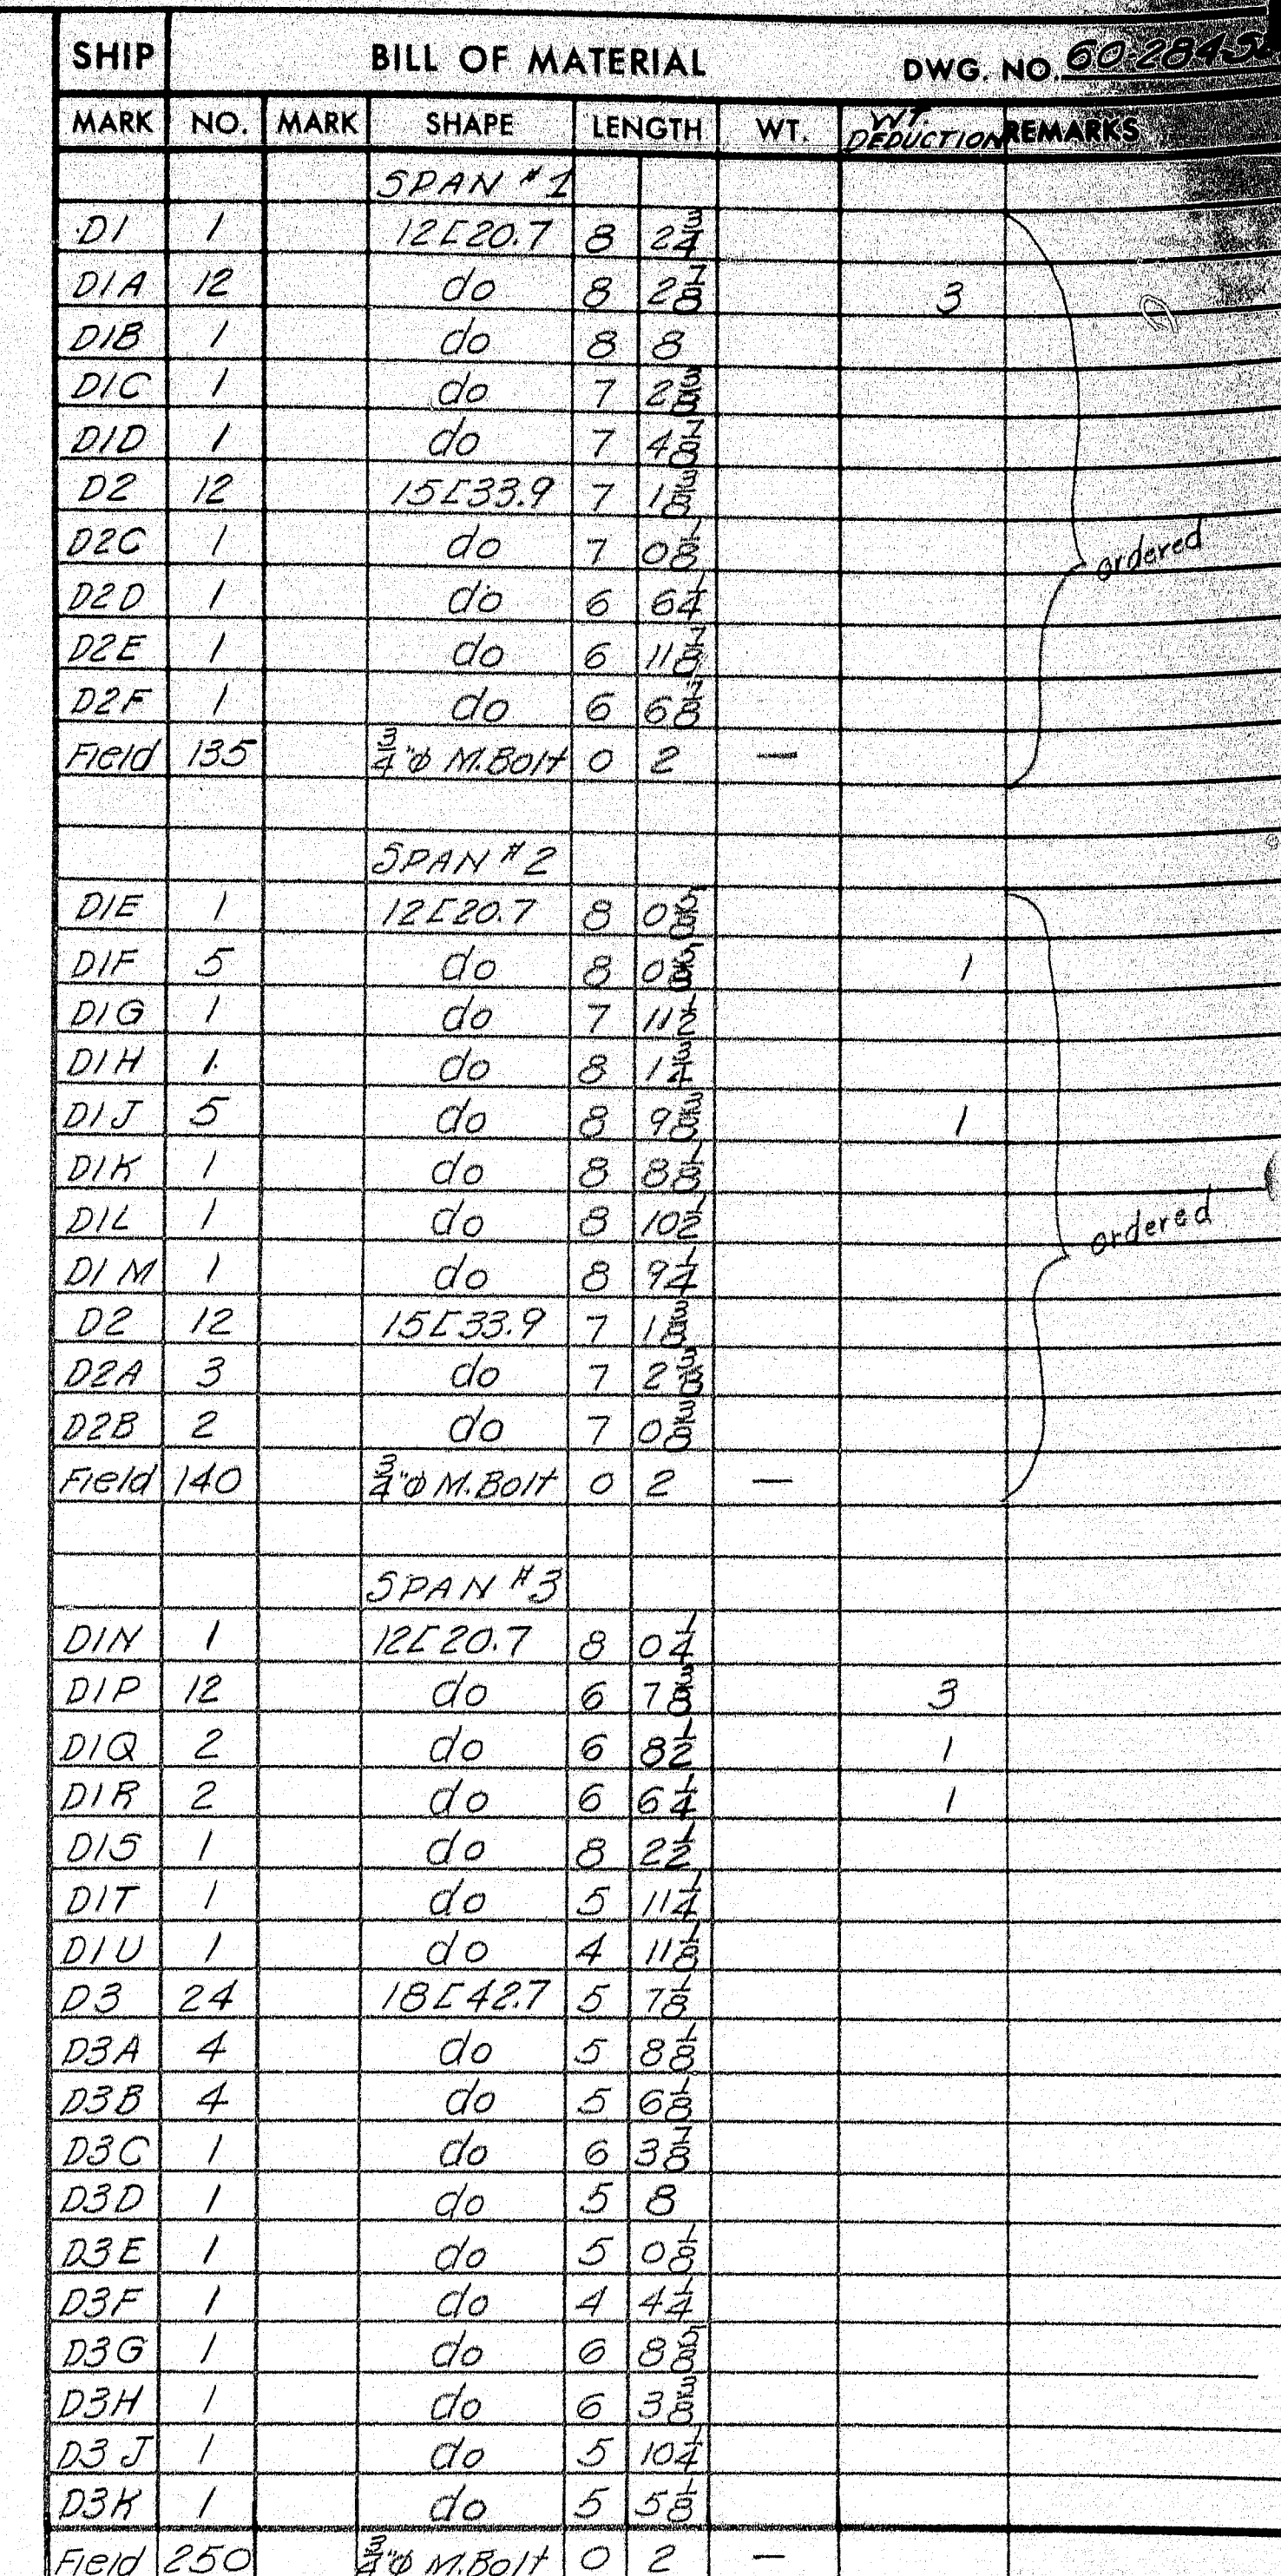 SHIP BILL OF MATERIAL DWG. NO. 60-284-
MARK NO. MARK SHAPE LENGTH WT. WT. DEDUCTION REMARKS
SPAN #1
D1 1 12[20.7 8 2 3/4
D1A 12 do 8 2 7/8 3
D1B 1 do 8 8
D1C 1 do 7 2 3/8
D1D 1 do 7 4 7/8
D2 12 15[33.9 7 1 3/8
D2C 1 do 7 0 1/8 ordered
D2D 1 do 6 6 1/4
D2E 1 do 6 11 7/8
D2F 1 do 6 6 7/8
Field 135 3/4"φ M.Bolt 0 2 —
SPAN #2
D1E 1 12[20.7 8 0 5/8
D1F 5 do 8 0 5/8 1
D1G 1 do 7 11 1/2
D1H 1 do 8 1 3/4
D1J 5 do 8 9 3/8 1
D1K 1 do 8 8 1/8
D1L 1 do 8 10 1/2 ordered
D1M 1 do 8 9 1/4
D2 12 15[33.9 7 1 3/8
D2A 3 do 7 2 3/8
D2B 2 do 7 0 3/8
Field 140 3/4"φ M.Bolt 0 2 —
SPAN #3
D1N 1 12[20.7 8 0 1/4
D1P 12 do 6 7 3/8 3
D1Q 2 do 6 8 1/2 1
D1R 2 do 6 6 1/4 1
D1S 1 do 8 2 1/2
D1T 1 do 5 11 1/4
D1U 1 do 4 11 1/8
D3 24 18[42.7 5 7 1/8
D3A 4 do 5 8 1/8
D3B 4 do 5 6 1/8
D3C 1 do 6 3 7/8
D3D 1 do 5 8
D3E 1 do 5 0 1/8
D3F 1 do 4 4 1/4
D3G 1 do 6 8 5/8
D3H 1 do 6 3 3/8
D3J 1 do 5 10 1/4
D3K 1 do 5 5 1/8
Field 250 3/4"φ M.Bolt 0 2 —